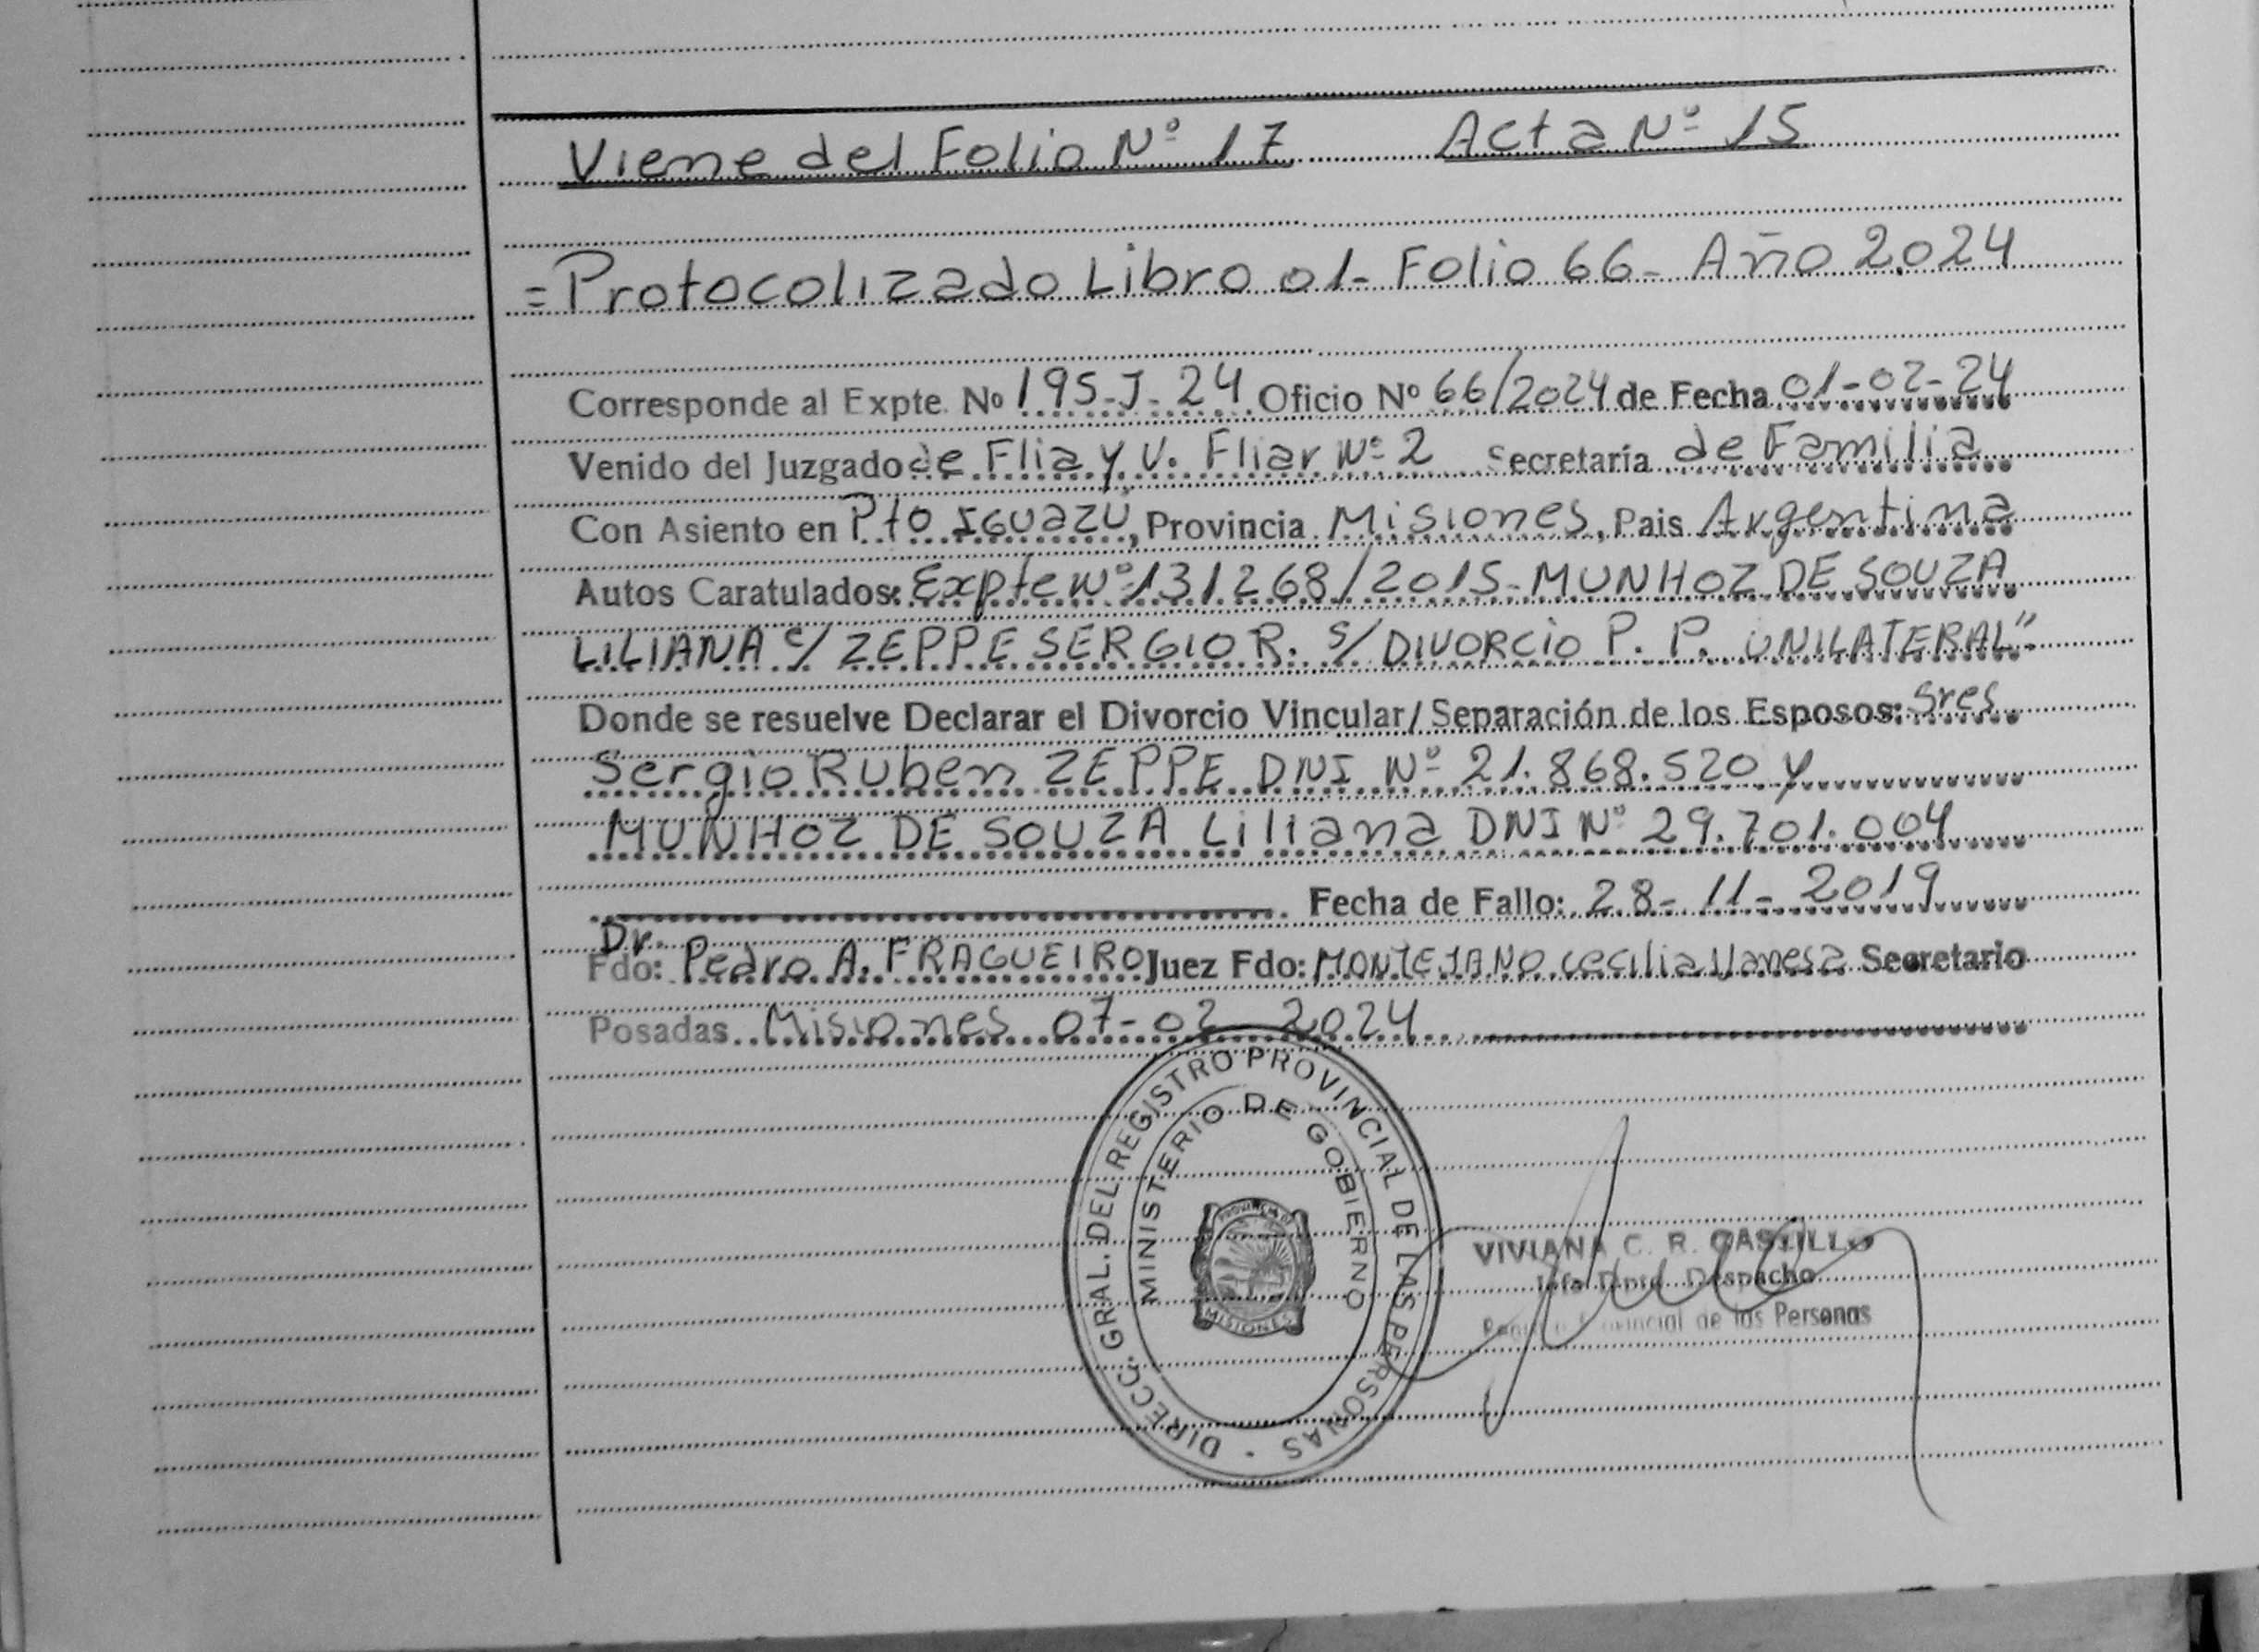 Viene del Folio Nº 17 Acta Nº 15
= Protocolizado Libro 01- Folio 66- Año 2.024
Corresponde al Expte. No 195-J-24 Oficio Nº 66/2024 de Fecha 01-02-24
Venido del Juzgado de Flia y V. Fliar Nº 2 Secretaría de Familia
Con Asiento en Pto IGUAZU, Provincia Misiones, Pais Argentina
Autos Caratulados: Expte Nº 131268/2015- MUNHOZ DE SOUZA
LILIANA c/ ZEPPE SERGIO R. s/ DIVORCIO P. P. UNILATERAL"-
Donde se resuelve Declarar el Divorcio Vincular/ Separación de los Esposos: Sres
Sergio Ruben ZEPPE DNI Nº 21.868.520 y
MUNHOZ DE SOUZA Liliana DNI Nº 29.701.004
Fecha de Fallo: 28-11-2019
Dr.
Fdo: Pedro A. FRAGUEIRO Juez Fdo: MONTEJANO Cecilia Vanesa Secretario
Posadas Misiones 07-02 2024
DIRECC. GRAL. DEL REGISTRO PROVINCIAL DE LAS PERSONAS -
MINISTERIO DE GOBIERNO
PROVINCIA DE
MISIONES
VIVIANA C. R. CASTILLO
Jefa Dpto. Despacho
Registro Provincial de las Personas